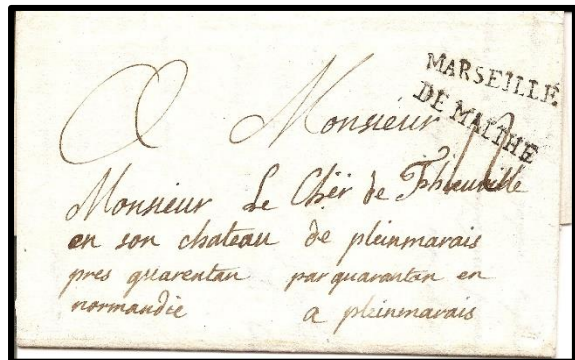 MARSEILLE
DE MALTHE
A Monsieur
Monsieur Le Chër de Thieuville
en son chateau de pleinmarais
pres quarentan par quarantan en
normandie a pleinmarais